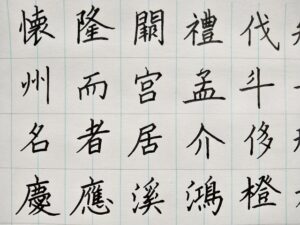 懷隆禮伐
州而宮孟斗
名者居介侈
慶應溪鴻橙